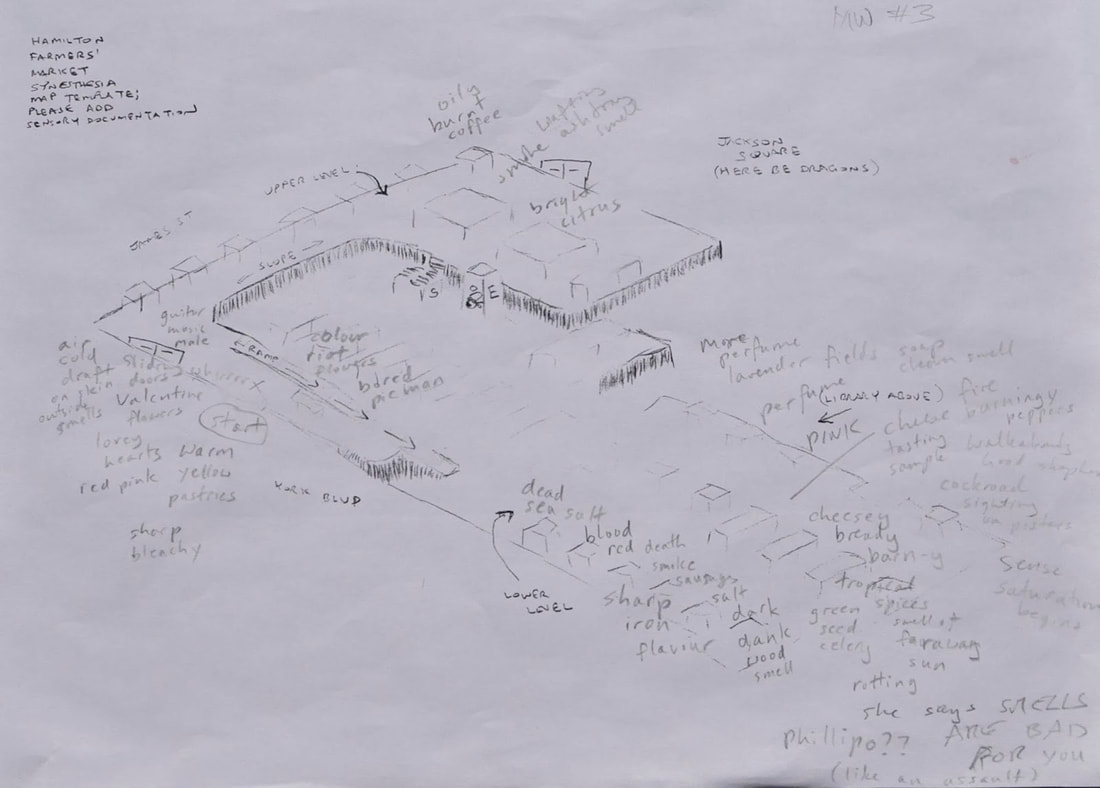 MW #3
HAMILTON
FARMERS'
MARKET
SYNESTHESIA
MAP TEMPLATE;
PLEASE ADD
SENSORY DOCUMENTATION
oily
burnt
coffee
wafting
ashtray
smell
smoke
JACKSON
SQUARE
(HERE BE DRAGONS)
UPPER LEVEL
bright
citrus
JAMES ST
SLOPE
S
E
guitar
music
male
RAMP
colour
riot
flowers
bored
pie man
air
cold
draft
outside
smells
sliding
doors
Valentine
flowers
start
lovey
hearts warm
red pink yellow
pastries
sharp
bleachy
YORK BLVD
more
perfume
lavender fields
soap
clean smell
perfume
(LIBRARY ABOVE)
PINK
cheese
tasting
sample
fire
burningy
peppies
cockroach
sighting
sense
saturation
begins
dead
sea salt
blood
red death
smoke
sausages
LOWER
LEVEL
sharp
iron
flavour
salt
dark
dank
wood
smell
cheesey
bready
barn-y
tropical
green spices
seed
celery
smell of
faraway
sun
rotting
she says SMELLS
ARE BAD
FOR YOU
Phillipo??
(like an assault)